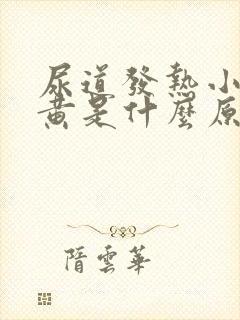 尿道發熱小
黃是什麼原
隋雲華